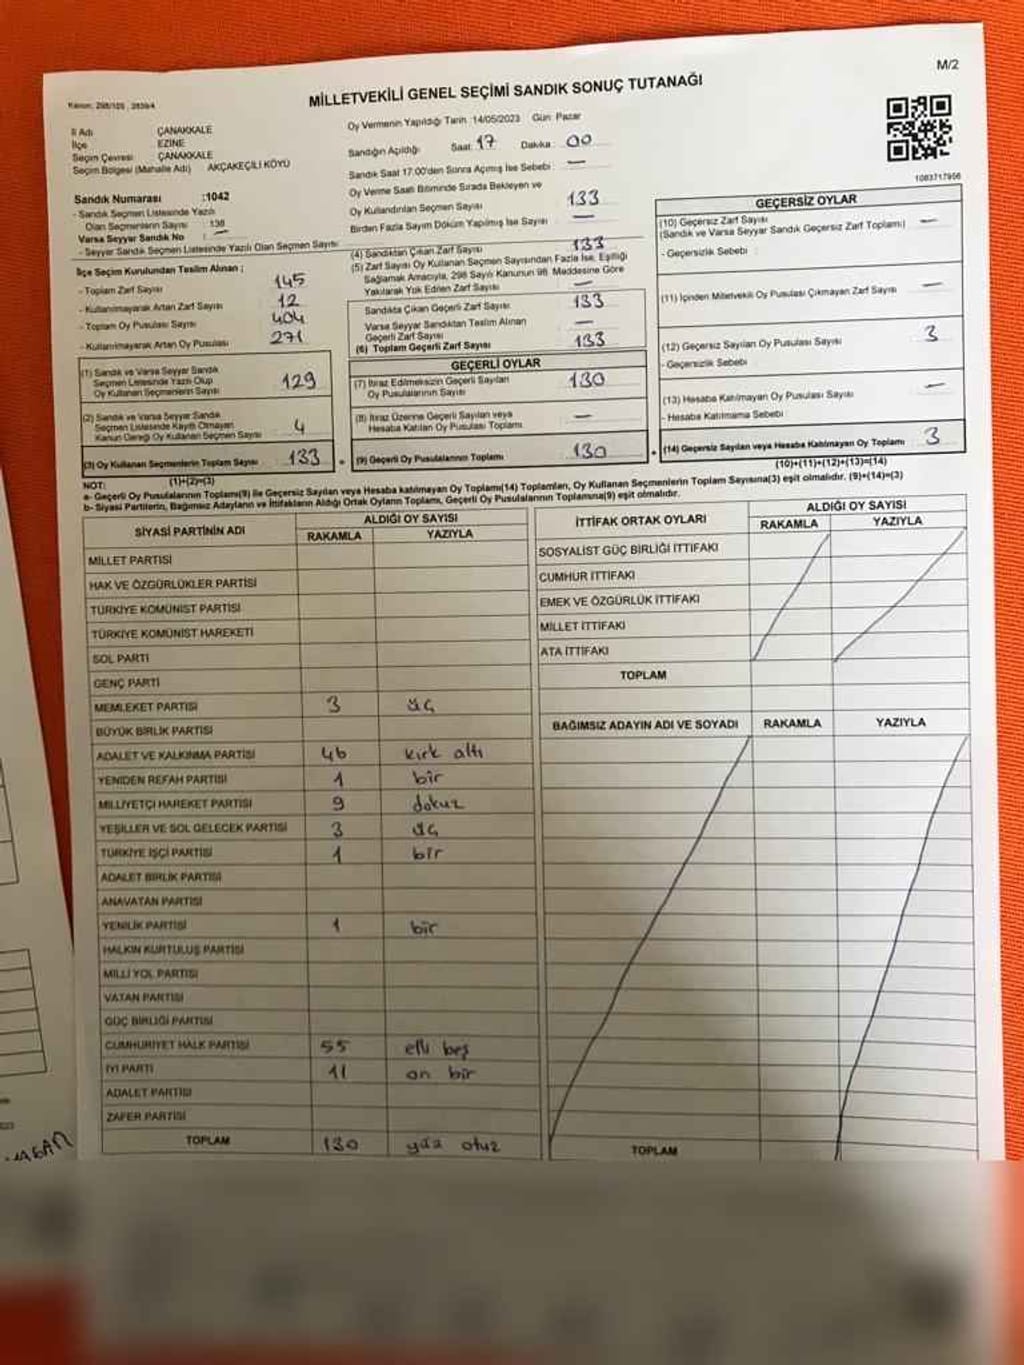 M/2
Kanun: 298/105 , 2839/4
MİLLETVEKİLİ GENEL SEÇİMİ SANDIK SONUÇ TUTANAĞI
İl Adı ÇANAKKALE
İlçe EZİNE
Seçim Çevresi ÇANAKKALE
Seçim Bölgesi (Mahalle Adı) AKÇAKEÇİLİ KÖYÜ
Sandık Numarası :1042
- Sandık Seçmen Listesinde Yazılı
Olan Seçmenlerin Sayısı : 136
Varsa Seyyar Sandık No : —
- Seyyar Sandık Seçmen Listesinde Yazılı Olan Seçmen Sayısı
İlçe Seçim Kurulundan Teslim Alınan ;
- Toplam Zarf Sayısı 145
- Kullanılmayarak Artan Zarf Sayısı 12
- Toplam Oy Pusulası Sayısı 404
- Kullanılmayarak Artan Oy Pusulası 271
(1) Sandık ve Varsa Seyyar Sandık
Seçmen Listesinde Yazılı Olup
Oy Kullanan Seçmenlerin Sayısı 129
(2) Sandık ve Varsa Seyyar Sandık
Seçmen Listesine Kayıtlı Olmayan
Kanun Gereği Oy Kullanan Seçmen Sayısı 4
(3) Oy Kullanan Seçmenlerin Toplam Sayısı 133
(1)+(2)=(3)
Oy Vermenin Yapıldığı Tarih :14/05/2023 Gün: Pazar
Sandığın Açıldığı Saat: 17 Dakika: 00
Sandık Saat 17:00'den Sonra Açılmış İse Sebebi : —
Oy Verme Saati Bitiminde Sırada Bekleyen ve
Oy Kullandırılan Seçmen Sayısı 133
Birden Fazla Sayım Döküm Yapılmış İse Sayısı —
(4) Sandıktan Çıkan Zarf Sayısı 133
(5) Zarf Sayısı Oy Kullanan Seçmen Sayısından Fazla İse, Eşitliği
Sağlamak Amacıyla, 298 Sayılı Kanunun 98. Maddesine Göre
Yakılarak Yok Edilen Zarf Sayısı —
Sandıkta Çıkan Geçerli Zarf Sayısı 133
Varsa Seyyar Sandıktan Teslim Alınan
Geçerli Zarf Sayısı —
(6) Toplam Geçerli Zarf Sayısı 133
GEÇERLİ OYLAR
(7) İtiraz Edilmeksizin Geçerli Sayılan
Oy Pusulalarının Sayısı 130
(8) İtiraz Üzerine Geçerli Sayılan veya
Hesaba Katılan Oy Pusulası Toplamı —
(9) Geçerli Oy Pusulalarının Toplamı 130
1083717956
GEÇERSİZ OYLAR
(10) Geçersiz Zarf Sayısı
(Sandık ve Varsa Seyyar Sandık Geçersiz Zarf Toplamı) —
- Geçersizlik Sebebi :
(11) İçinden Milletvekili Oy Pusulası Çıkmayan Zarf Sayısı —
(12) Geçersiz Sayılan Oy Pusulası Sayısı 3
- Geçersizlik Sebebi :
(13) Hesaba Katılmayan Oy Pusulası Sayısı —
- Hesaba Katılmama Sebebi :
(14) Geçersiz Sayılan veya Hesaba Katılmayan Oy Toplamı 3
(10)+(11)+(12)+(13)=(14)
NOT:
a- Geçerli Oy Pusulalarının Toplamı(9) ile Geçersiz Sayılan veya Hesaba katılmayan Oy Toplamı(14) Toplamları, Oy Kullanan Seçmenlerin Toplam Sayısına(3) eşit olmalıdır. (9)+(14)=(3)
b- Siyasi Partilerin, Bağımsız Adayların ve İttifakların Aldığı Ortak Oyların Toplamı, Geçerli Oy Pusulalarının Toplamına(9) eşit olmalıdır.
SİYASİ PARTİNİN ADI ALDIĞI OY SAYISI
RAKAMLA YAZIYLA
MİLLET PARTİSİ
HAK VE ÖZGÜRLÜKLER PARTİSİ
TÜRKİYE KOMÜNİST PARTİSİ
TÜRKİYE KOMÜNİST HAREKETİ
SOL PARTİ
GENÇ PARTİ
MEMLEKET PARTİSİ 3 üç
BÜYÜK BİRLİK PARTİSİ
ADALET VE KALKINMA PARTİSİ 46 kırk altı
YENİDEN REFAH PARTİSİ 1 bir
MİLLİYETÇİ HAREKET PARTİSİ 9 dokuz
YEŞİLLER VE SOL GELECEK PARTİSİ 3 üç
TÜRKİYE İŞÇİ PARTİSİ 1 bir
ADALET BİRLİK PARTİSİ
ANAVATAN PARTİSİ
YENİLİK PARTİSİ 1 bir
HALKIN KURTULUŞ PARTİSİ
MİLLİ YOL PARTİSİ
VATAN PARTİSİ
GÜÇ BİRLİĞİ PARTİSİ
CUMHURİYET HALK PARTİSİ 55 elli beş
İYİ PARTİ 11 on bir
ADALET PARTİSİ
ZAFER PARTİSİ
TOPLAM 130 yüz otuz
İTTİFAK ORTAK OYLARI ALDIĞI OY SAYISI
RAKAMLA YAZIYLA
SOSYALİST GÜÇ BİRLİĞİ İTTİFAKI
CUMHUR İTTİFAKI
EMEK VE ÖZGÜRLÜK İTTİFAKI
MİLLET İTTİFAKI
ATA İTTİFAKI
TOPLAM
BAĞIMSIZ ADAYIN ADI VE SOYADI RAKAMLA YAZIYLA
TOPLAM